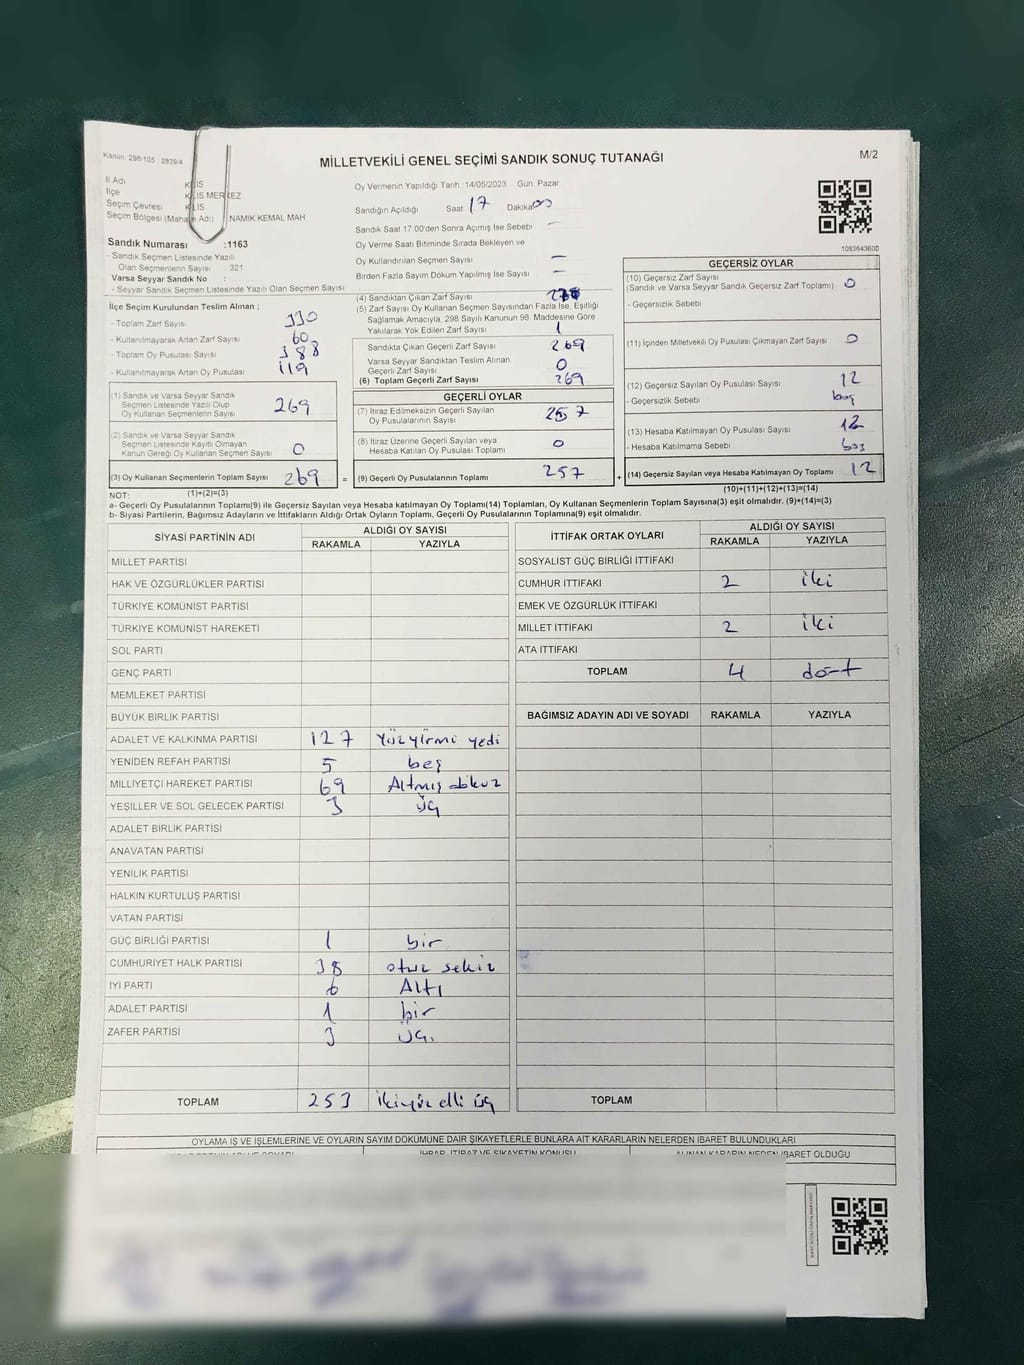 Kanun: 298/105 ; 2839/4
MİLLETVEKİLİ GENEL SEÇİMİ SANDIK SONUÇ TUTANAĞI
M/2
İl Adı KİLİS
İlçe KİLİS MERKEZ
Seçim Çevresi KİLİS
Seçim Bölgesi (Mahalle Adı) NAMIK KEMAL MAH
Oy Vermenin Yapıldığı Tarih 14/05/2023 Gün Pazar
Sandığın Açıldığı Saat 17 Dakika 00
Sandık Saat 17 00'den Sonra Açımış İse Sebebi —
Oy Verme Saati Bitiminde Sırada Bekleyen ve
Oy Kullandırılan Seçmen Sayısı —
Birden Fazla Sayım Döküm Yapılmış İse Sayısı —
1083643600
Sandık Numarası :1163
- Sandık Seçmen Listesinde Yazılı
Olan Seçmenlerin Sayısı 321
Varsa Seyyar Sandık No :
- Seyyar Sandık Seçmen Listesinde Yazılı Olan Seçmen Sayısı
İlçe Seçim Kurulundan Teslim Alınan ;
- Toplam Zarf Sayısı 330
- Kullanılmayarak Artan Zarf Sayısı 60
- Toplam Oy Pusulası Sayısı 388
- Kullanılmayarak Artan Oy Pusulası 119
(1) Sandık ve Varsa Seyyar Sandık
Seçmen Listesinde Yazılı Olup
Oy Kullanan Seçmenlerin Sayısı 269
(2) Sandık ve Varsa Seyyar Sandık
Seçmen Listesinde Kayıtlı Olmayan
Kanun Gereği Oy Kullanan Seçmen Sayısı 0
(3) Oy Kullanan Seçmenlerin Toplam Sayısı 269 =
(4) Sandıktan Çıkan Zarf Sayısı
(5) Zarf Sayısı Oy Kullanan Seçmen Sayısından Fazla İse, Eşitliği
Sağlamak Amacıyla, 298 Sayılı Kanunun 98. Maddesine Göre
Yakılarak Yok Edilen Zarf Sayısı 1
Sandıkta Çıkan Geçerli Zarf Sayısı 269
Varsa Seyyar Sandıktan Teslim Alınan
Geçerli Zarf Sayısı 0
(6) Toplam Geçerli Zarf Sayısı 269
GEÇERLİ OYLAR
(7) İtiraz Edilmeksizin Geçerli Sayılan
Oy Pusulalarının Sayısı 257
(8) İtiraz Üzerine Geçerli Sayılan veya
Hesaba Katılan Oy Pusulası Toplamı 0
(9) Geçerli Oy Pusulalarının Toplamı 257 +
GEÇERSİZ OYLAR
(10) Geçersiz Zarf Sayısı
(Sandık ve Varsa Seyyar Sandık Geçersiz Zarf Toplamı) 0
- Geçersizlik Sebebi
(11) İçinden Milletvekili Oy Pusulası Çıkmayan Zarf Sayısı 0
(12) Geçersiz Sayılan Oy Pusulası Sayısı 12
- Geçersizlik Sebebi boş
(13) Hesaba Katılmayan Oy Pusulası Sayısı 12
- Hesaba Katılmama Sebebi boş
(14) Geçersiz Sayılan veya Hesaba Katılmayan Oy Toplamı 12
NOT: (1)+(2)=(3) (10)+(11)+(12)+(13)=(14)
a- Geçerli Oy Pusulalarının Toplamı(9) ile Geçersiz Sayılan veya Hesaba katılmayan Oy Toplamı(14) Toplamları, Oy Kullanan Seçmenlerin Toplam Sayısına(3) eşit olmalıdır. (9)+(14)=(3)
b- Siyasi Partilerin, Bağımsız Adayların ve İttifakların Aldığı Ortak Oyların Toplamı, Geçerli Oy Pusulalarının Toplamına(9) eşit olmalıdır.
SİYASİ PARTİNİN ADI ALDIĞI OY SAYISI
RAKAMLA YAZIYLA
MİLLET PARTİSİ
HAK VE ÖZGÜRLÜKLER PARTİSİ
TÜRKİYE KOMÜNİST PARTİSİ
TÜRKİYE KOMÜNİST HAREKETİ
SOL PARTİ
GENÇ PARTİ
MEMLEKET PARTİSİ
BÜYÜK BİRLİK PARTİSİ
ADALET VE KALKINMA PARTİSİ 127 Yüz yirmi yedi
YENİDEN REFAH PARTİSİ 5 beş
MİLLİYETÇİ HAREKET PARTİSİ 69 Altmış dokuz
YEŞİLLER VE SOL GELECEK PARTİSİ 3 üç
ADALET BİRLİK PARTİSİ
ANAVATAN PARTİSİ
YENİLİK PARTİSİ
HALKIN KURTULUŞ PARTİSİ
VATAN PARTİSİ
GÜÇ BİRLİĞİ PARTİSİ 1 bir
CUMHURİYET HALK PARTİSİ 38 otuz sekiz
İYİ PARTİ 6 Altı
ADALET PARTİSİ 1 bir
ZAFER PARTİSİ 3 üç.
TOPLAM 253 ikiyüz elli üç
İTTİFAK ORTAK OYLARI ALDIĞI OY SAYISI
RAKAMLA YAZIYLA
SOSYALİST GÜÇ BİRLİĞİ İTTİFAKI
CUMHUR İTTİFAKI 2 iki
EMEK VE ÖZGÜRLÜK İTTİFAKI
MİLLET İTTİFAKI 2 iki
ATA İTTİFAKI
TOPLAM 4 dört
BAĞIMSIZ ADAYIN ADI VE SOYADI RAKAMLA YAZIYLA
TOPLAM
OYLAMA İŞ VE İŞLEMLERİNE VE OYLARIN SAYIM DÖKÜMÜNE DAİR ŞİKAYETLERLE BUNLARA AİT KARARLARIN NELERDEN İBARET BULUNDUKLARI
İHBAR, İTİRAZ VE ŞİKAYETİN KONUSU ALINAN KARARIN NEDEN İBARET OLDUĞU